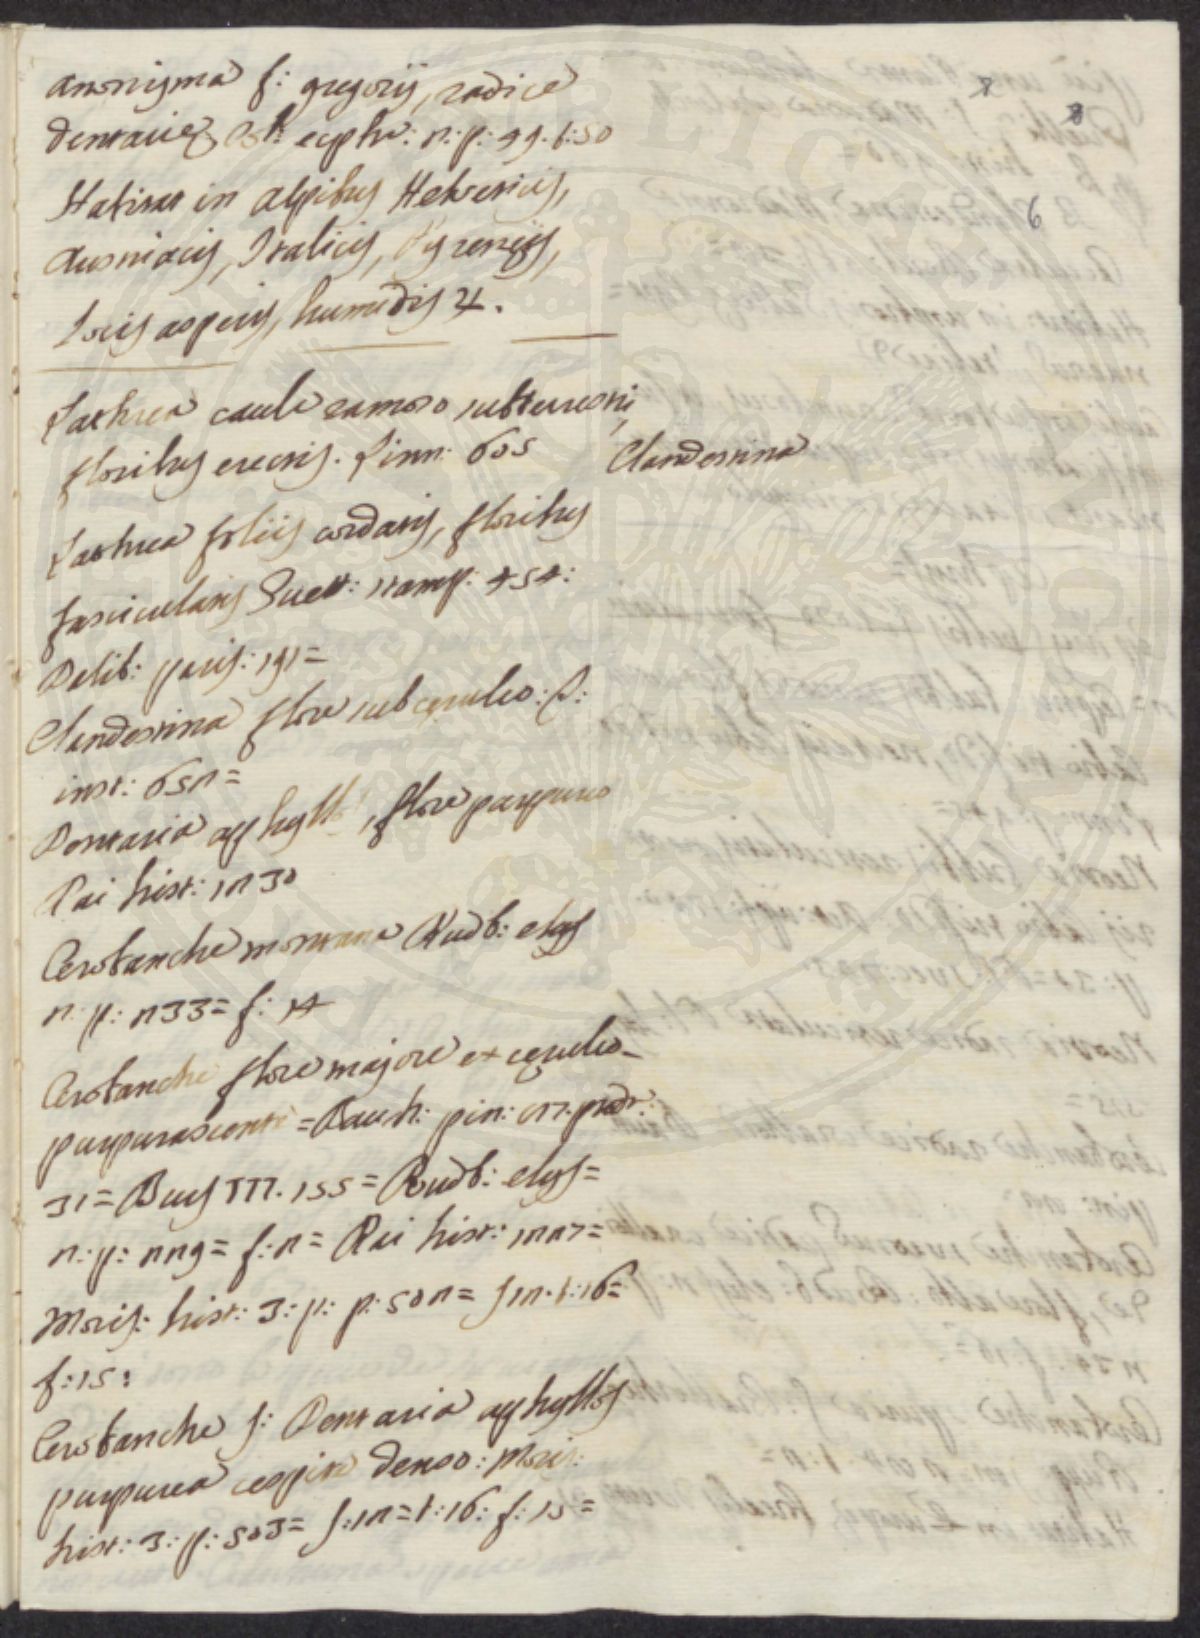 anonigma f: gregorij, radice
dentarie Col: ecphr: n: p: 49. t: 50
Habitat in alpibus Helveticis,
Austriacis, Italicis, Pyreneijs,
locis asperis, humidis ♃.
Lathrea caule ramoso subterraneo
floribus erectis. Linn: 605
Clandestina
Lathrea foliis cordatis, floribus
fascicularis Guett: stamp: 454:
Dalib: paris: 191=
Clandestina flore subceruleo: T:
inst: 652=
Dentaria aphyllos, flore purpureo
Rai hist: 1230
Orobanche montana Rudb: elys
2: p: 233= f: 14
Orobanche flore majore ex ceruleo-
purpurascente =Bauh: pin: prodr:
31= Buxb III. 155= Rudb: elys=
2: p: 229= f: 2= Rai hist: 1227=
Moris: hist: 3: p: p: 502= s12. t: 16=
f: 15:
Orobanche s: Dentaria aphyllos
purpurea cespite denso: Moris:
hist: 3: p: 503= s: 12= t: 16: f: 15=
8
6